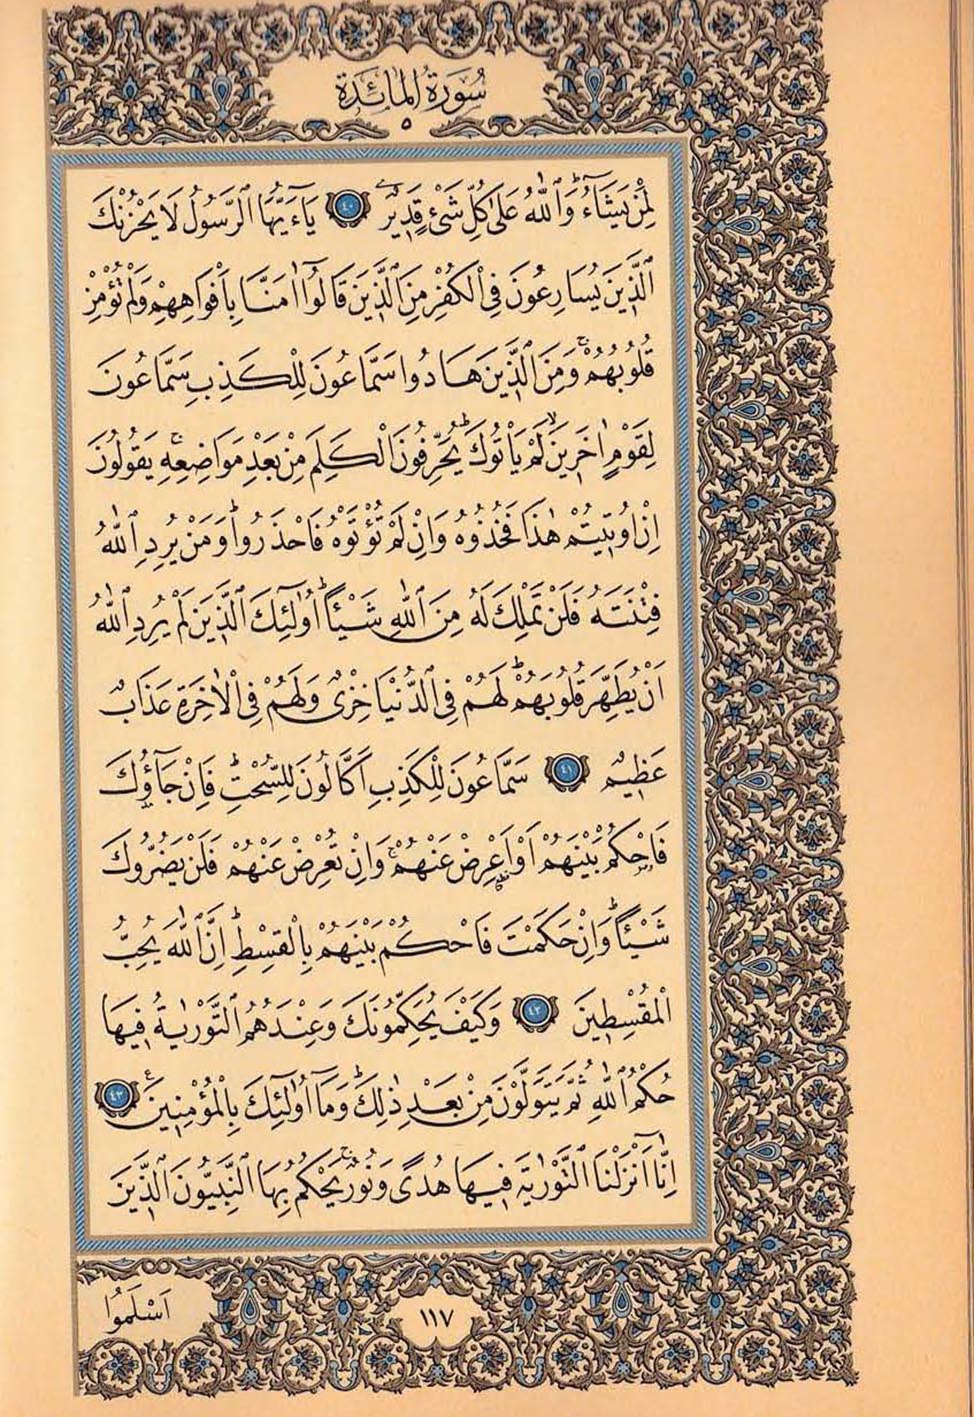 سُورَةُ الْمَائِدَةِ
٥
لِمَنْ يَشَاءُ وَاللّٰهُ عَلٰى كُلِّ شَىْءٍ قَدِيرٌ ٤٠ يَاءَيُّهَا الرَّسُولُ لَا يَحْزُنْكَ
الَّذِينَ يُسَارِعُونَ فِى الْكُفْرِ مِنَ الَّذِينَ قَالُوا اٰمَنَّا بِاَفْوَاهِهِمْ وَلَمْ تُؤْمِنْ
قُلُوبُهُمْ وَمِنَ الَّذِينَ هَادُوا سَمَّاعُونَ لِلْكَذِبِ سَمَّاعُونَ
لِقَوْمٍ اٰخَرِينَ لَمْ يَأْتُوكَ يُحَرِّفُونَ الْكَلِمَ مِنْ بَعْدِ مَوَاضِعِهِ يَقُولُونَ
اِنْ اُوتِيتُمْ هٰذَا فَخُذُوهُ وَاِنْ لَمْ تُؤْتَوْهُ فَاحْذَرُوا وَمَنْ يُرِدِ اللّٰهُ
فِتْنَتَهُ فَلَنْ تَمْلِكَ لَهُ مِنَ اللّٰهِ شَيْئًا اُولٰئِكَ الَّذِينَ لَمْ يُرِدِ اللّٰهُ
اَنْ يُطَهِّرَ قُلُوبَهُمْ لَهُمْ فِى الدُّنْيَا خِزْىٌ وَلَهُمْ فِى الْاٰخِرَةِ عَذَابٌ
عَظِيمٌ ٤١ سَمَّاعُونَ لِلْكَذِبِ اَكَّالُونَ لِلسُّحْتِ فَاِنْ جَاؤُكَ
فَاحْكُمْ بَيْنَهُمْ اَوْ اَعْرِضْ عَنْهُمْ وَاِنْ تُعْرِضْ عَنْهُمْ فَلَنْ يَضُرُّوكَ
شَيْئًا وَاِنْ حَكَمْتَ فَاحْكُمْ بَيْنَهُمْ بِالْقِسْطِ اِنَّ اللّٰهَ يُحِبُّ
الْمُقْسِطِينَ ٤٢ وَكَيْفَ يُحَكِّمُونَكَ وَعِنْدَهُمُ التَّوْرٰيةُ فِيهَا
حُكْمُ اللّٰهِ ثُمَّ يَتَوَلَّوْنَ مِنْ بَعْدِ ذٰلِكَ وَمَا اُولٰئِكَ بِالْمُؤْمِنِينَ ٤٣
اِنَّا اَنْزَلْنَا التَّوْرٰيةَ فِيهَا هُدًى وَنُورٌ يَحْكُمُ بِهَا النَّبِيُّونَ الَّذِينَ
اَسْلَمُوا
١١٧